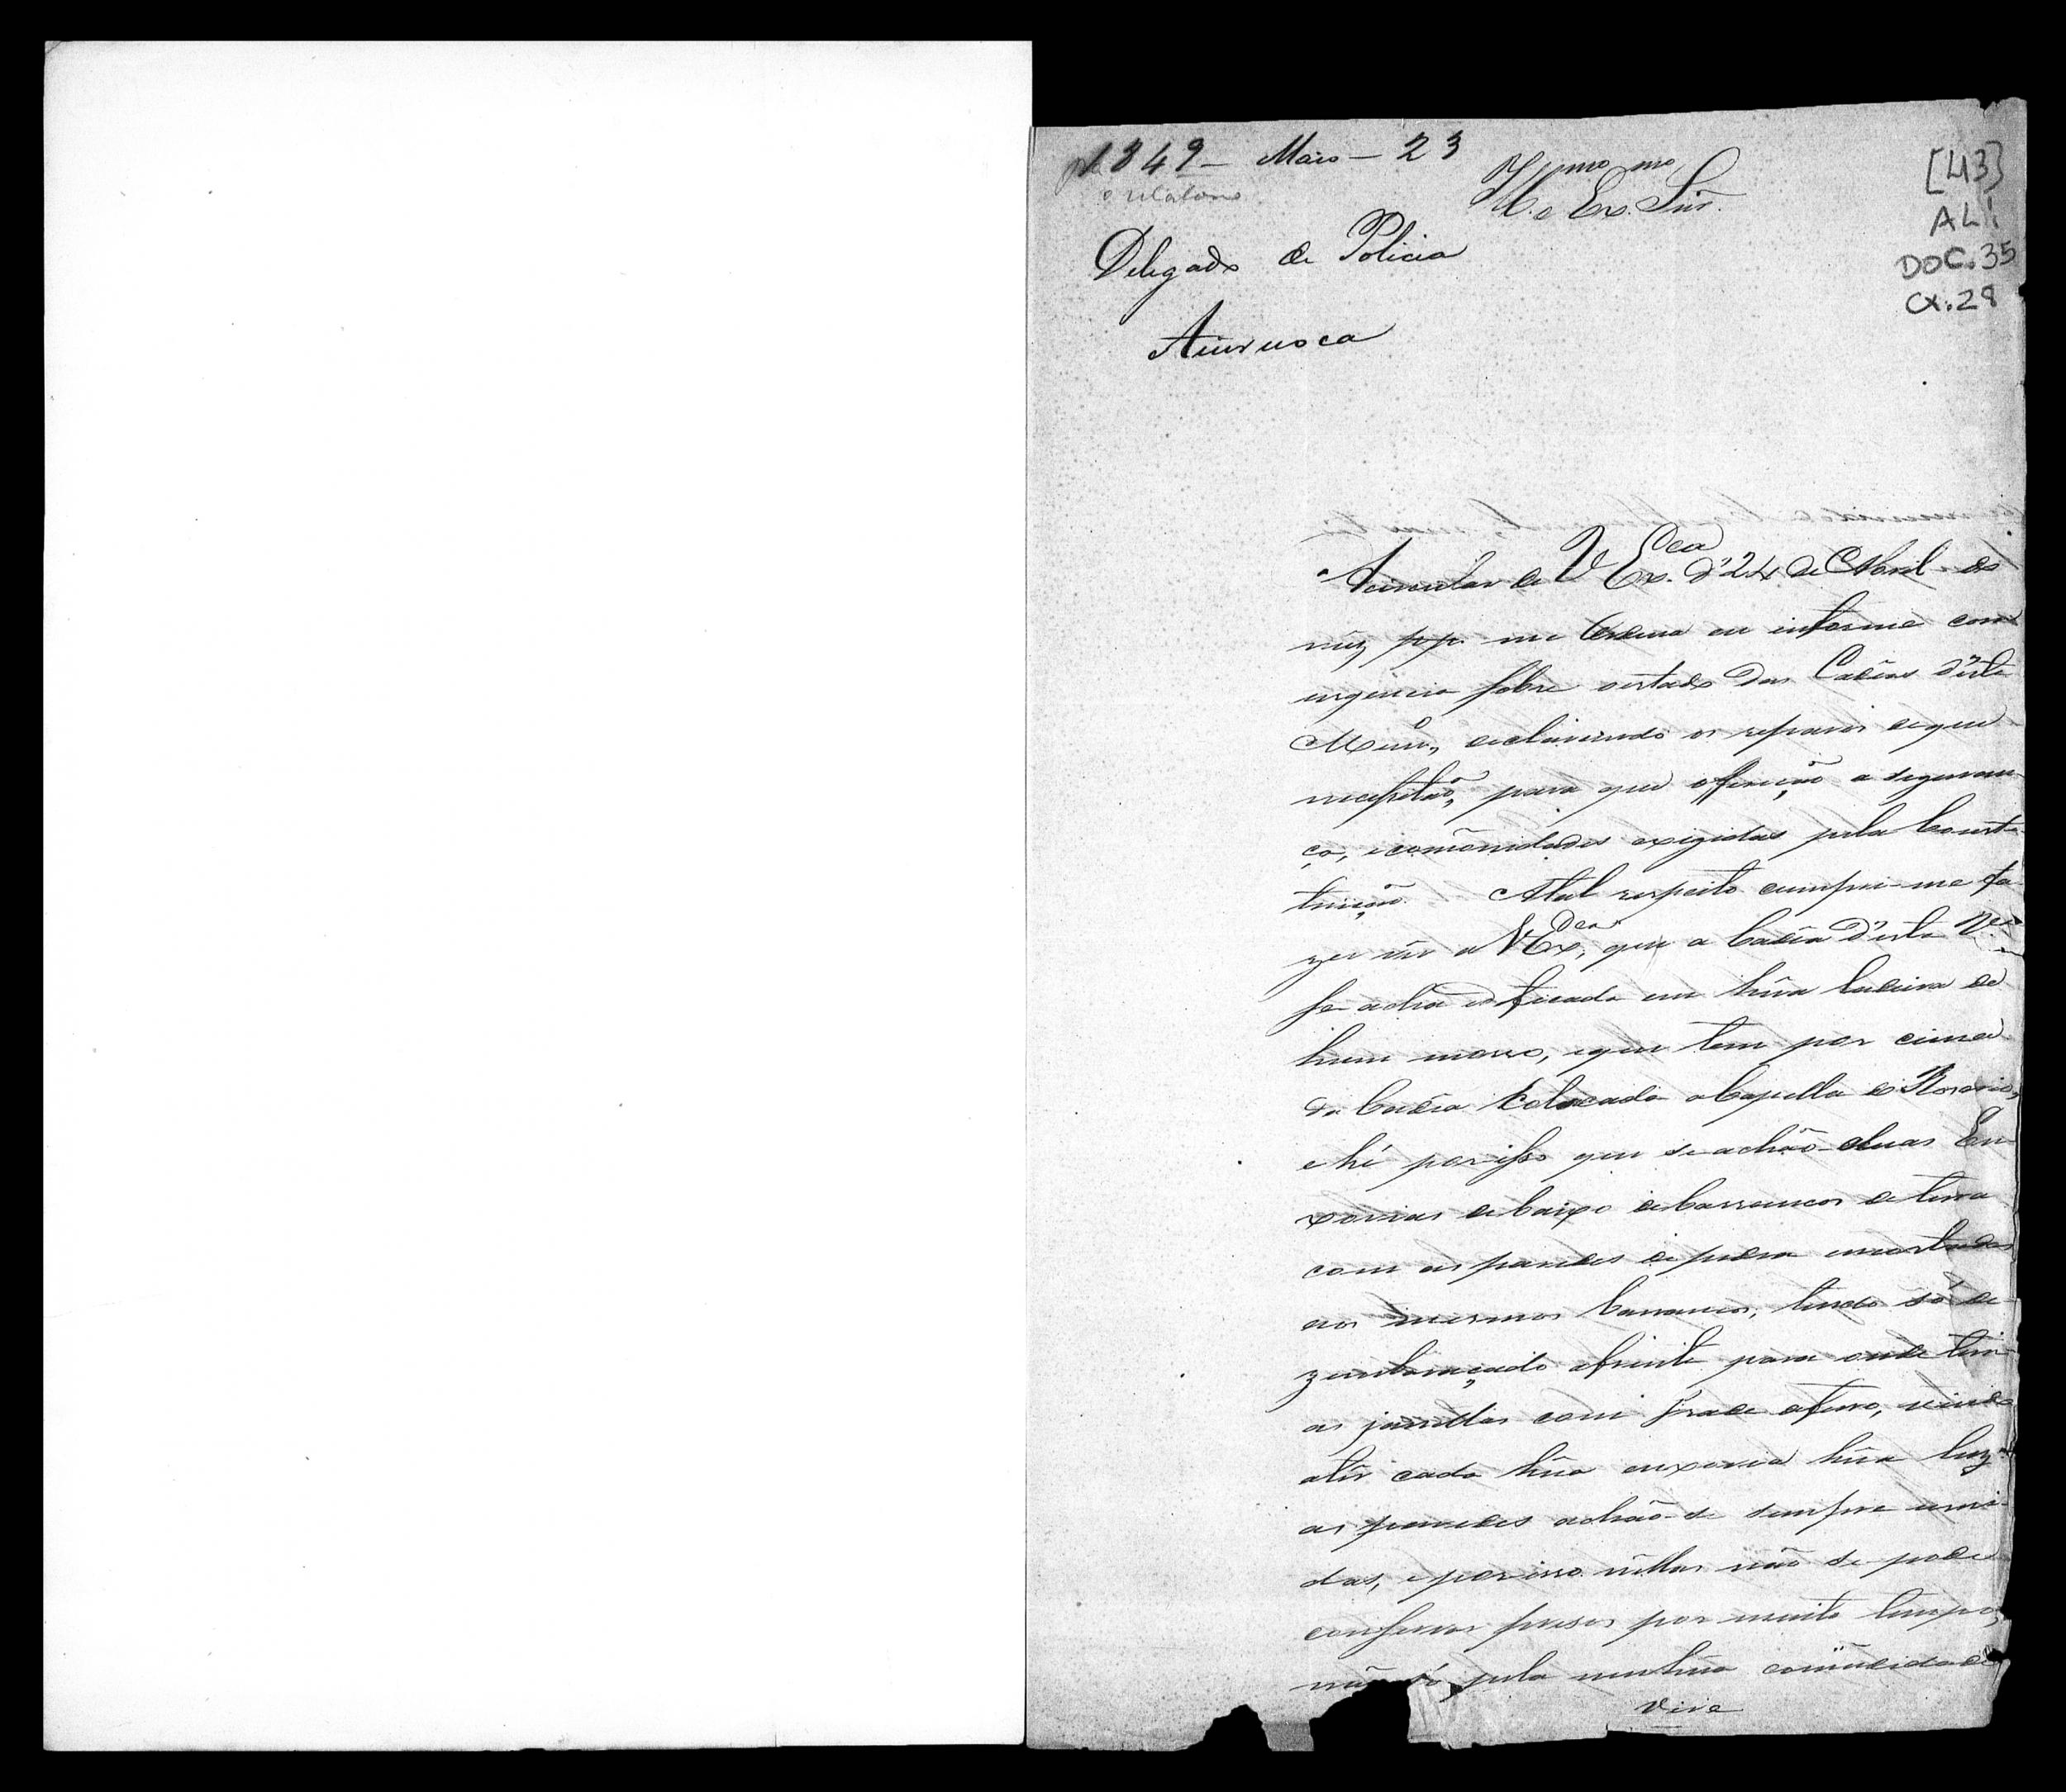 1849 - Maio - 23
o relatorio
Illmo. e Exmo. Snr.
[43]
AL!
DOC. 35
CX. 28
Delegado de Policia
Aiuruoca
A circular de V Excia. d'24 de Abril do
mez pp. me Ordena eu informe com
urgencia sobre o estado das Cadêas d'êste
Munº, declarando os reparos de que
necessitão, para que offereção a seguran-
ça, e comõnidades exigidas pela Consti-
tuição. A tal respeito cumpre-me fa-
zer vêr a V Excia, que a Cadêa d'esta Vª
se acha edificada em hũa ladeira de
hum morro, e que tem por cima
da Cadêa colocada a Capella do Rosario,
e hé por isso que se achão duas En-
xovias debaixo de barrancos de terra
com as paredes de pedra encostadas
aos mesmos barrancos, tendo só de-
zembaraçado a frente para onde tem
as janellas com grade de ferro, vindo
a têr cada hũa enxovia hũa luz
as paredes achão-se sempre umi-
das, e por isso nellas não se pode
conservar presos por muito tempo,
não só pela nenhũa comũdidade
Vire